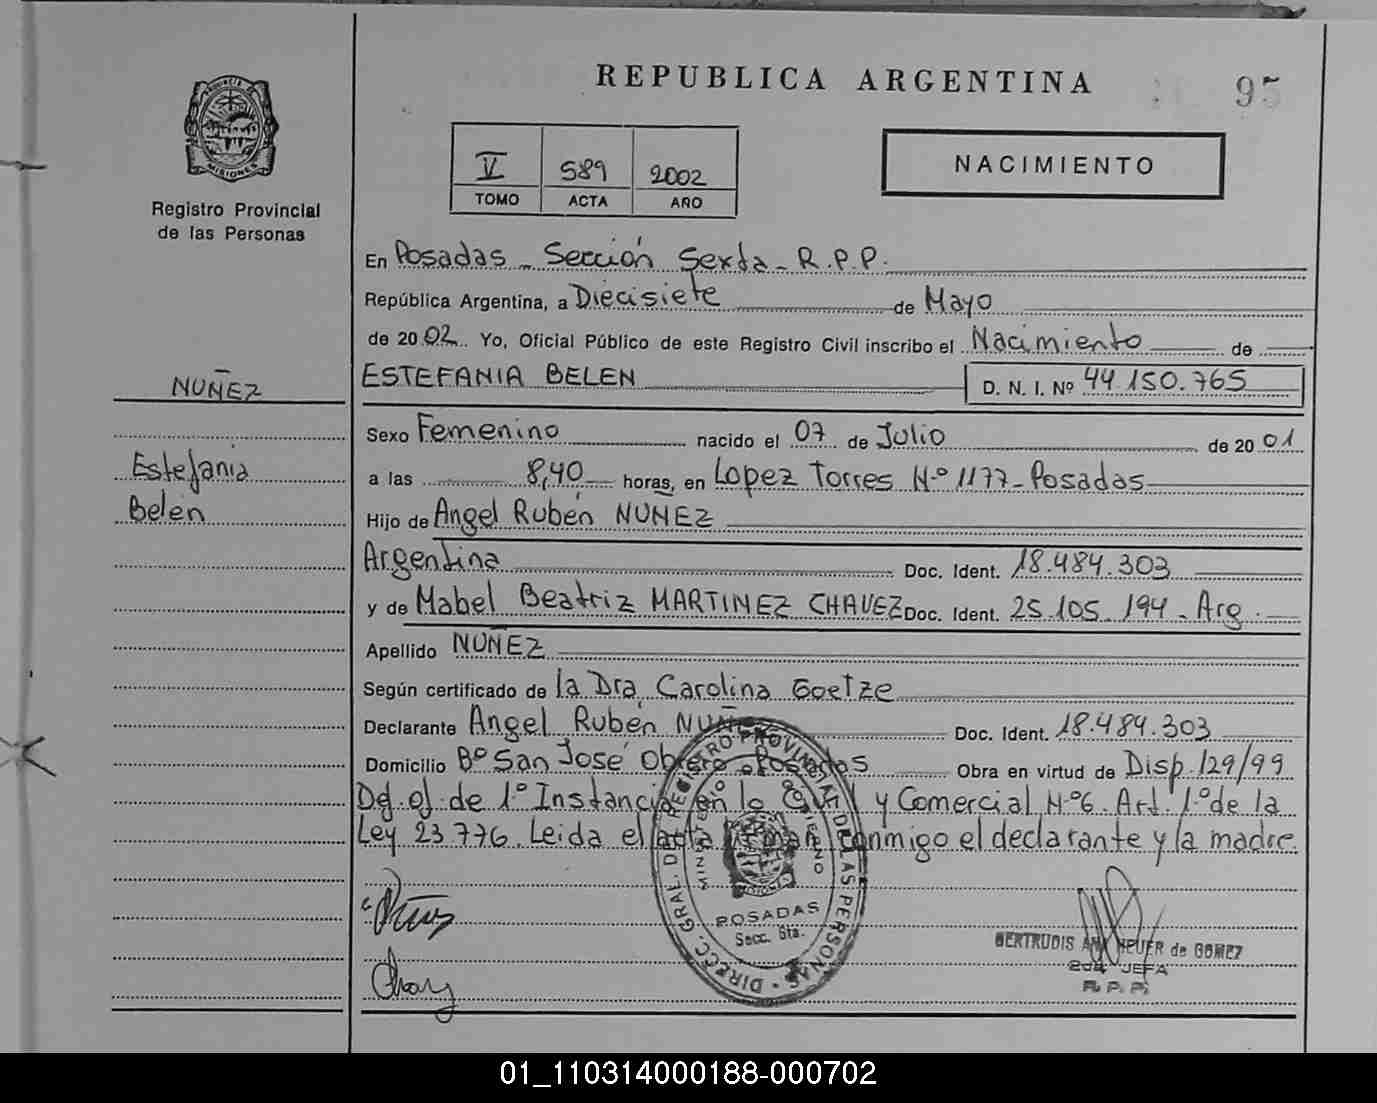 REPUBLICA ARGENTINA
95
PROVINCIA DE MISIONES
Registro Provincial
de las Personas
V 589 2002
TOMO ACTA AÑO
NACIMIENTO
En Posadas - Sección Sexta - R.P.P.
República Argentina, a Diecisiete de Mayo
de 2002. Yo, Oficial Público de este Registro Civil inscribo el Nacimiento de
NUÑEZ
Estefania
Belén
ESTEFANIA BELEN D. N. I. Nº 44.150.765
Sexo Femenino nacido el 07 de Julio de 2001
a las 8,40 horas, en Lopez Torres Nº 1177 - Posadas
Hijo de Angel Rubén NUÑEZ
Argentina Doc. Ident. 18.484.303
y de Mabel Beatriz MARTINEZ CHAVEZ Doc. Ident. 25.105.194 - Arg.
Apellido NUÑEZ
Según certificado de la Dra. Carolina Goetze
Declarante Angel Rubén NUÑEZ Doc. Ident. 18.484.303
Domicilio Bº San José Obrero - Posadas Obra en virtud de Disp. 129/99
Def. of. de 1º Instancia en lo Civil y Comercial Nº6. Art. 1º de la
Ley 23.776. Leida el acta firman conmigo el declarante y la madre.
DIRECC. GRAL. DE REGISTRO PROVINCIAL DE LAS PERSONAS
MINISTERIO DE GOBIERNO
POSADAS
Secc. 6ta.
GERTRUDIS ANA HEUER de GOMEZ
2da JEFA
R. P. P.
01_110314000188-000702